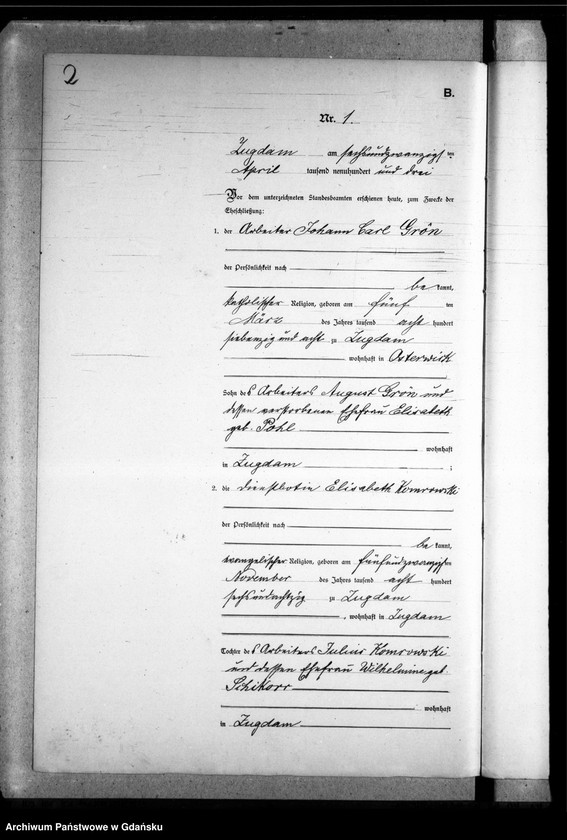 2
B.
Nr. 1.
Zugdam am sechsundzwanzigsten
April tausend neunhundert und drei
Vor dem unterzeichneten Standesbeamten erschienen heute, zum Zwecke der
Eheschließung:
1. der Arbeiter Johann Carl Grön
der Persönlichkeit nach
be kannt,
katholischer Religion, geboren am fünf ten
März des Jahres tausend acht hundert
siebenzig und acht zu Zugdam
wohnhaft in Osterwick
Sohn des Arbeiters August Grön und
dessen verstorbenen Ehefrau Elisabeth
geb. Pohl
wohnhaft
in Zugdam ;
2. die Dienstbotin Elisabeth Komrowski
der Persönlichkeit nach
be kannt,
evangelischer Religion, geboren am fünfundzwanzigsten
November des Jahres tausend acht hundert
sechsundachtzig zu Zugdam
, wohnhaft in Zugdam
Tochter des Arbeiters Julius Komrowski
und dessen Ehefrau Wilhelmine geb
Schikorr
wohnhaft
in Zugdam
Archiwum Państwowe w Gdańsku